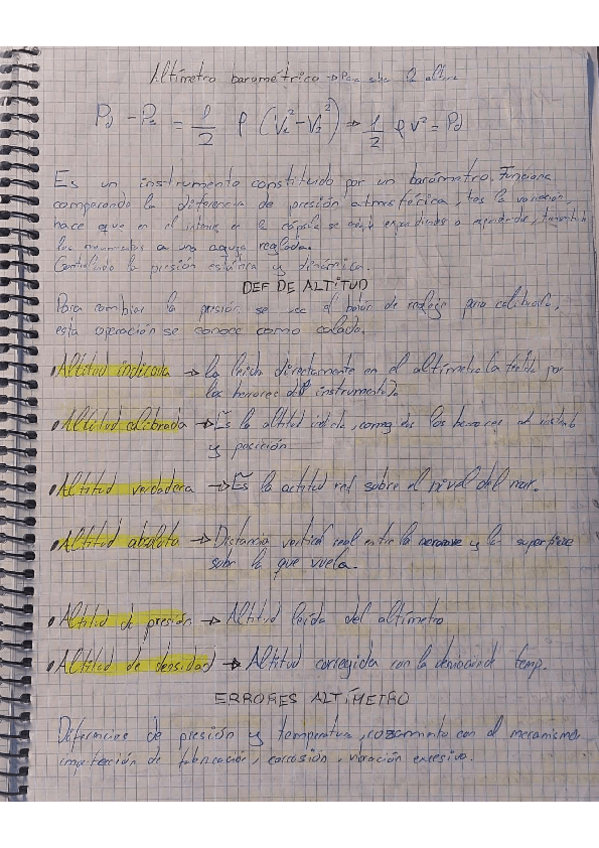 Altímetro barométrico → Para saber la altura
Pd - Pa = 1/2 ρ (V² - V²) → 1/2 ρ v² = Pd
Es un instrumento constituido por un barómetro. Funciona
comparando la diferencia de presión atmosférica, tras la variación,
hace que en el interior de la cápsula se
los movimientos a una aguja reglada.
Controlando la presión estática y dinámica.
DEF DE ALTITUD
Para cambiar la presión se usa el botón de reglaje para calibrarlo,
esta operación se conoce como calado.
• Altitud indicada → La leida directamente en el altímetro
los herrores del instrumento
• Altitud calibrada → Es la altitud los herrores
y posición
• Altitud verdadera → Es la actitud real sobre el nivel del mar.
• Altitud absoluta → Distancia vertical real entre la aeronave y la superficie
sobre la que vuela.
• Altitud de presión → Altitud leída del altímetro
• Altitud de densidad → Altitud corregida con la temp.
ERRORES ALTÍMETRO
Diferencias de presión y temperatura, rozamiento con el mecanismo,
imperfección de fabricación, corrosión, vibración excesiva.